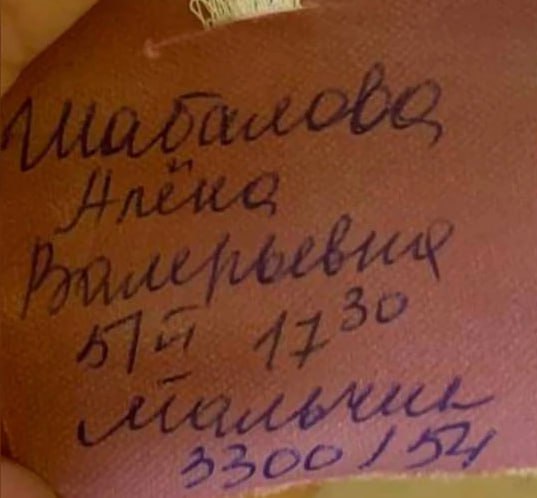 Шабалова
Алёна
Валерьевна
5/II 17 30
Мальчик
3300 / 54